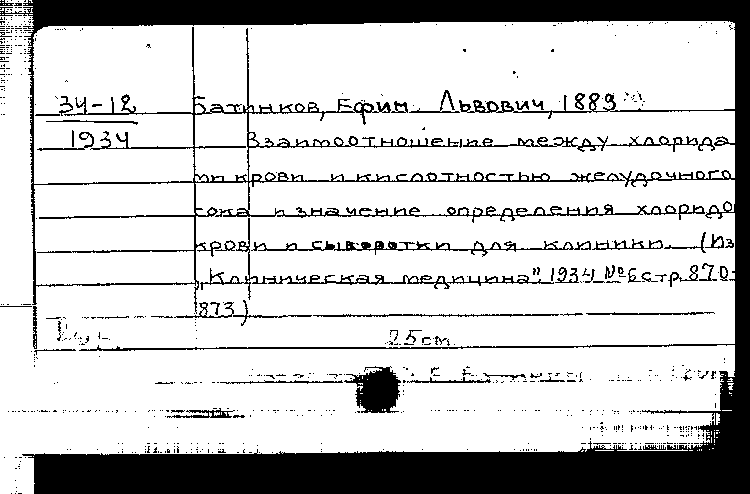 34-12 Батинков, Ефим Львович, 1889
1934 Взаимоотношение между хлорида
ми крови и кислотностью желудочного
сока и значение определения хлоридо
крови и сыворотки для клиники. (Из
„Клиническая медицина". 1934 №6 стр. 870-
873)
25 cm